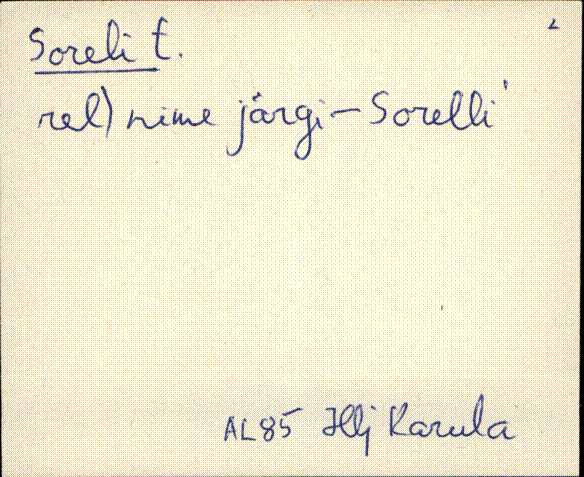 Soreli t.
rel) nime järgi – Sorelli
AL85 Hlj Karula